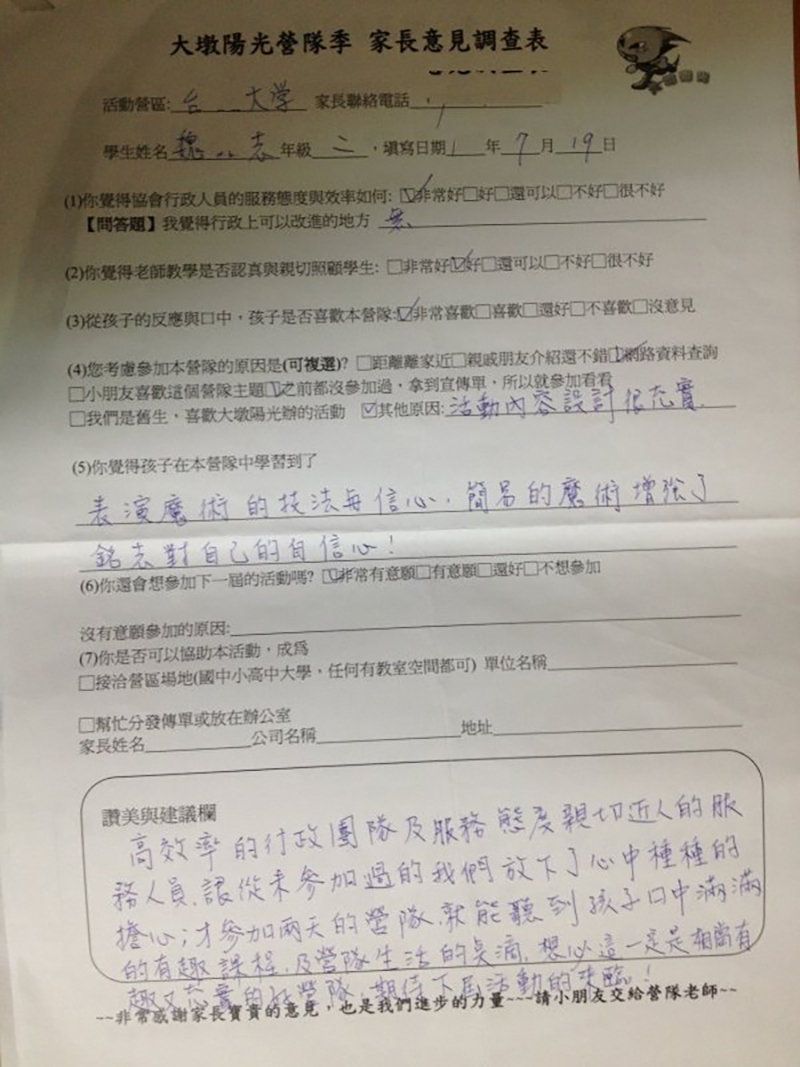 大墩陽光營隊季 家長意見調查表
活動營區: 台 大学 家長聯絡電話
學生姓名 魏 志 年級 二 ，填寫日期 1 年 7 月 19 日
(1)你覺得協會行政人員的服務態度與效率如何: ☑非常好□好□還可以□不好□很不好
【問答題】我覺得行政上可以改進的地方 無
(2)你覺得老師教學是否認真與親切照顧學生: □非常好☑好□還可以□不好□很不好
(3)從孩子的反應與口中，孩子是否喜歡本營隊:☑非常喜歡□喜歡□還好□不喜歡□沒意見
(4)您考慮參加本營隊的原因是(可複選)? □距離離家近□親戚朋友介紹還不錯☑網路資料查詢
□小朋友喜歡這個營隊主題☑之前都沒參加過，拿到宣傳單，所以就參加看看
□我們是舊生，喜歡大墩陽光辦的活動 ☑其他原因: 活動內容設計很充實.
(5)你覺得孩子在本營隊中學習到了
表演魔術的技法與信心，簡易的魔術增強了
銘志對自己的自信心！
(6)你還會想參加下一屆的活動嗎? ☑非常有意願□有意願□還好□不想參加
沒有意願參加的原因:
(7)你是否可以協助本活動，成為
□接洽營區場地(國中小高中大學，任何有教室空間都可) 單位名稱
□幫忙分發傳單或放在辦公室
家長姓名 公司名稱 地址
讚美與建議欄
高效率的行政團隊及服務態度親切近人的服
務人員，讓從未參加過的我們放下了心中種種的
擔心；才參加兩天的營隊，就能聽到孩子口中滿滿
的有趣課程，及營隊生活的點滴，想必這一定是相當有
趣又充實的好營隊，期待下屆活動的來臨！
~~非常感謝家長寶貴的意見，也是我們進步的力量~~~請小朋友交給營隊老師~~